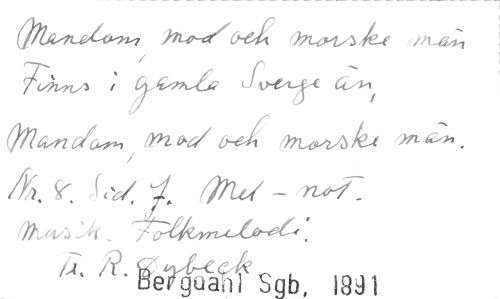 Mandom, mod och morske män
Finns i gamla Sverge än,
Mandom, mod och morske män.
Nr. 8. Sid. 7. Mel - not.
Musik. Folkmelodi.
Tr. R. Dybeck
Bergdahl Sgb, 1891